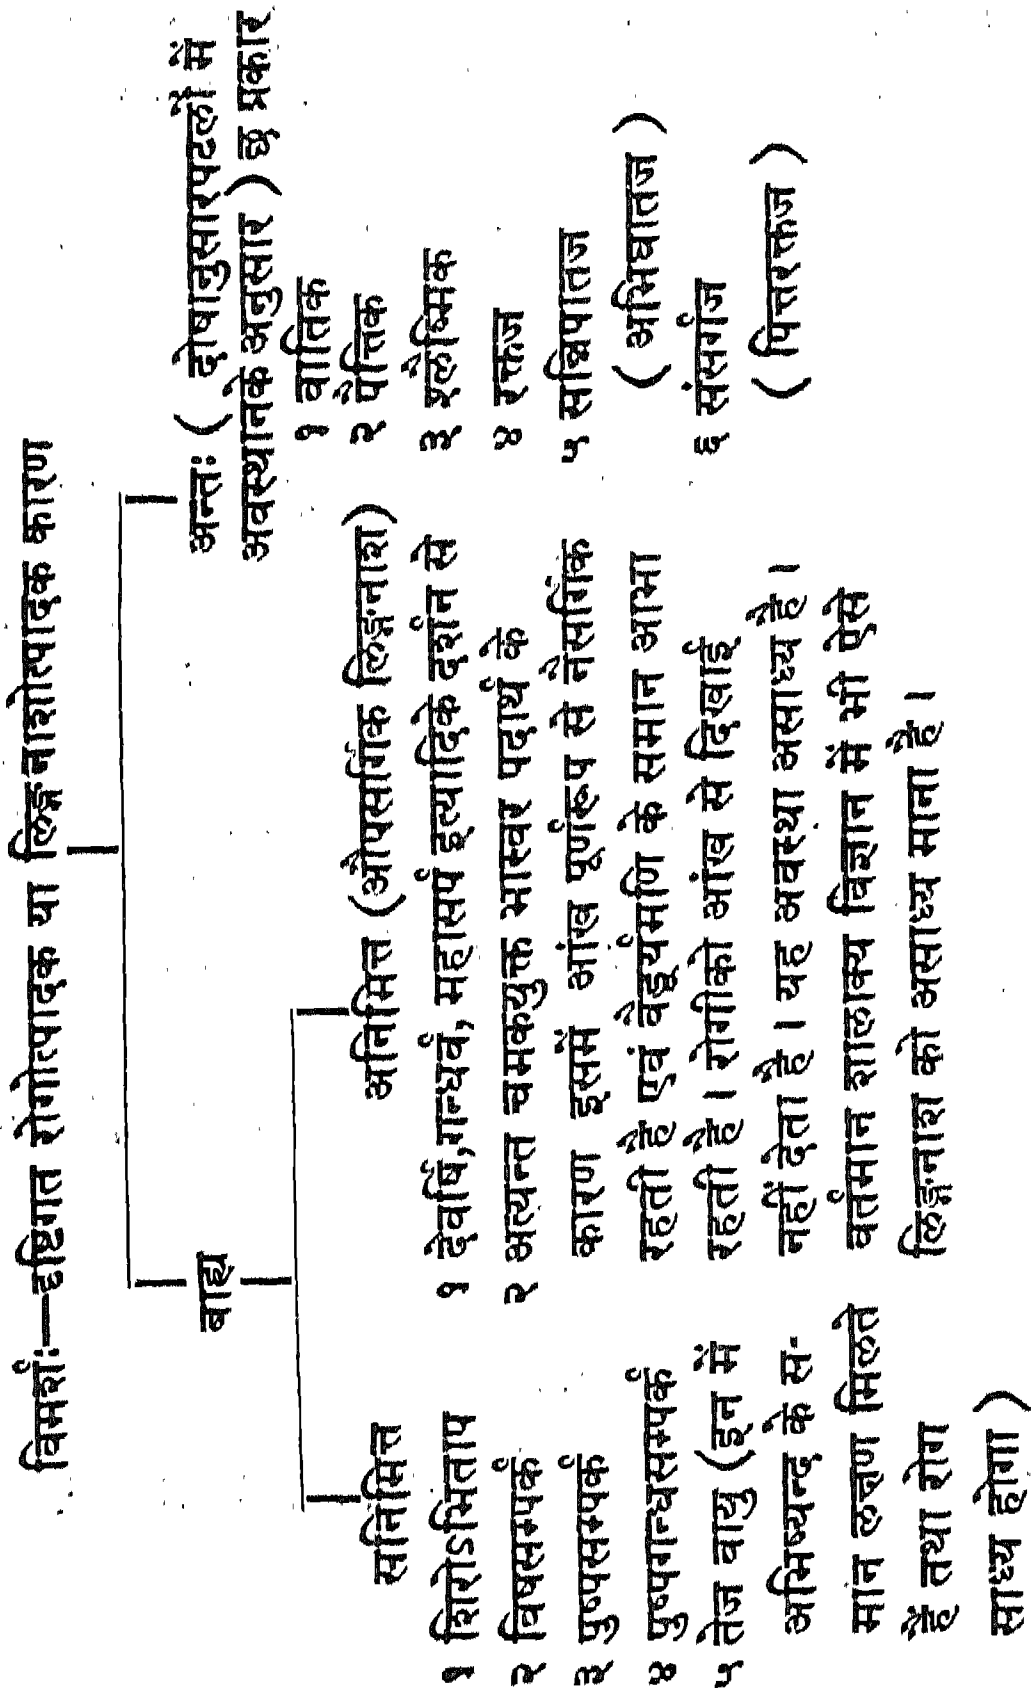 विमर्शः—दृष्टिगत रोगोत्पादक या लिङ्गनाशोत्पादक कारण
बाह्य
सनिमित्त
१ शिरोऽभिताप
२ विषसम्पर्क
३ पुष्पसम्पर्क
४ पुष्पगन्धसम्पर्क
५ तेज वायु (इन में
अभिष्यन्द के स-
मान लक्षण मिलते
हैं तथा रोग
साध्य होगा )
अनिमित्त (औपसर्गिक लिङ्गनाश)
१ देवर्षि,गन्धर्व, महासर्प इत्यादिके दर्शन से
२ अत्यन्त चमकयुक्त भास्वर पदार्थ के
कारण इसमें आंख पूर्णरूप से नैसर्गिक
रहती है एवं वैडूर्यमणि के समान आभा
रहती है । रोगीको आंख से दिखाई
नहीं देता है । यह अवस्था असाध्य है ।
वर्तमान शालाक्य विज्ञान में भी ऐसे
लिङ्गनाश को असाध्य माना है ।
अन्तः ( दोषानुसारपटलों में
अवस्थानके अनुसार ) छ प्रकार
१ वातिक
२ पैत्तिक
३ श्लैष्मिक
४ रक्तज
५ सन्निपातज
( अभिघातज )
६ संसर्गज
( पित्तरक्तज )